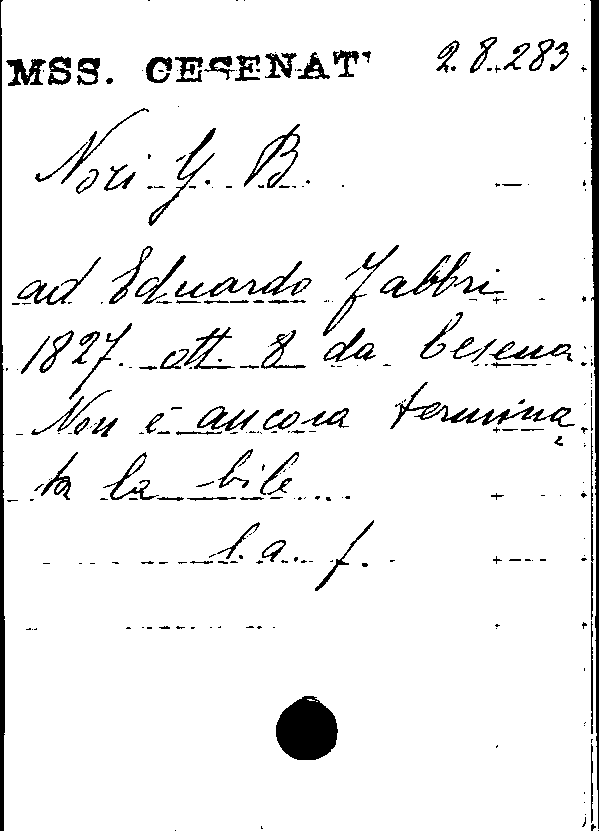 MSS. CESENATI 2.8.283
Nori G. B.
ad Eduardo Fabbri
1827. ott. 8 da Cesena
Non è ancora termina
ta la bile...
l. a. f.